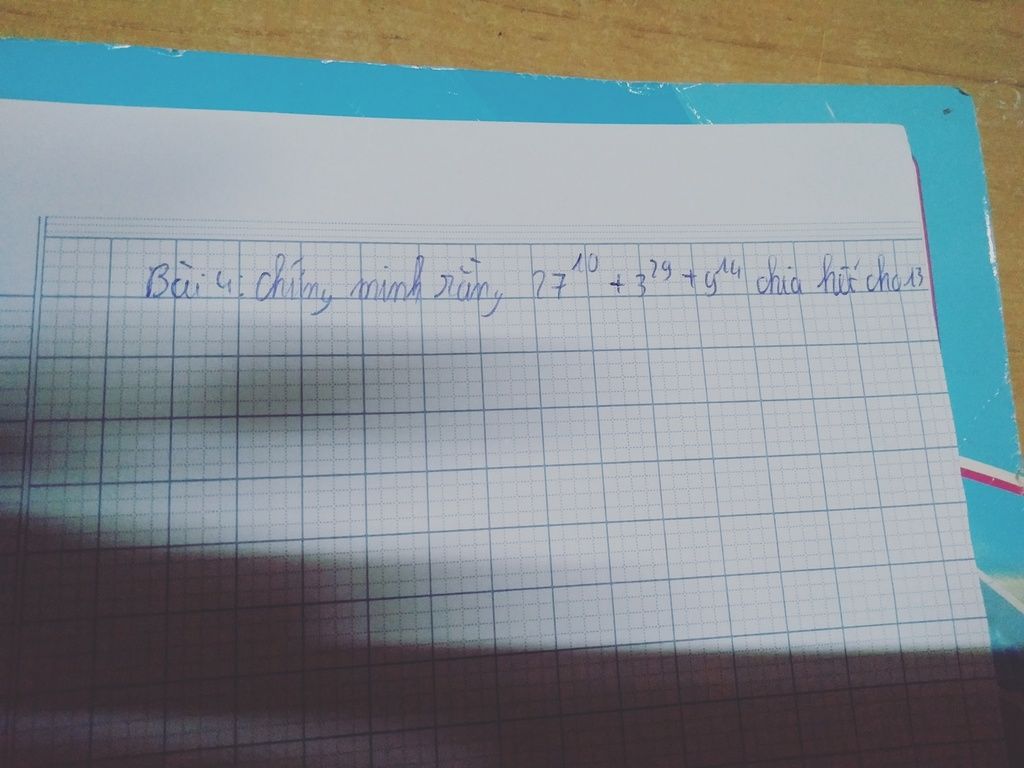 Bài 4: Chứng minh rằng 27¹⁰ + 3²⁹ + 9¹⁴ chia hết cho 13